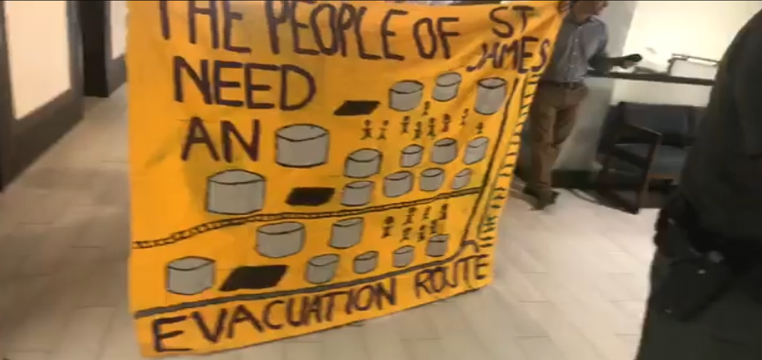 THE PEOPLE OF ST
JAMES
NEED
AN
EVACUATION ROUTE